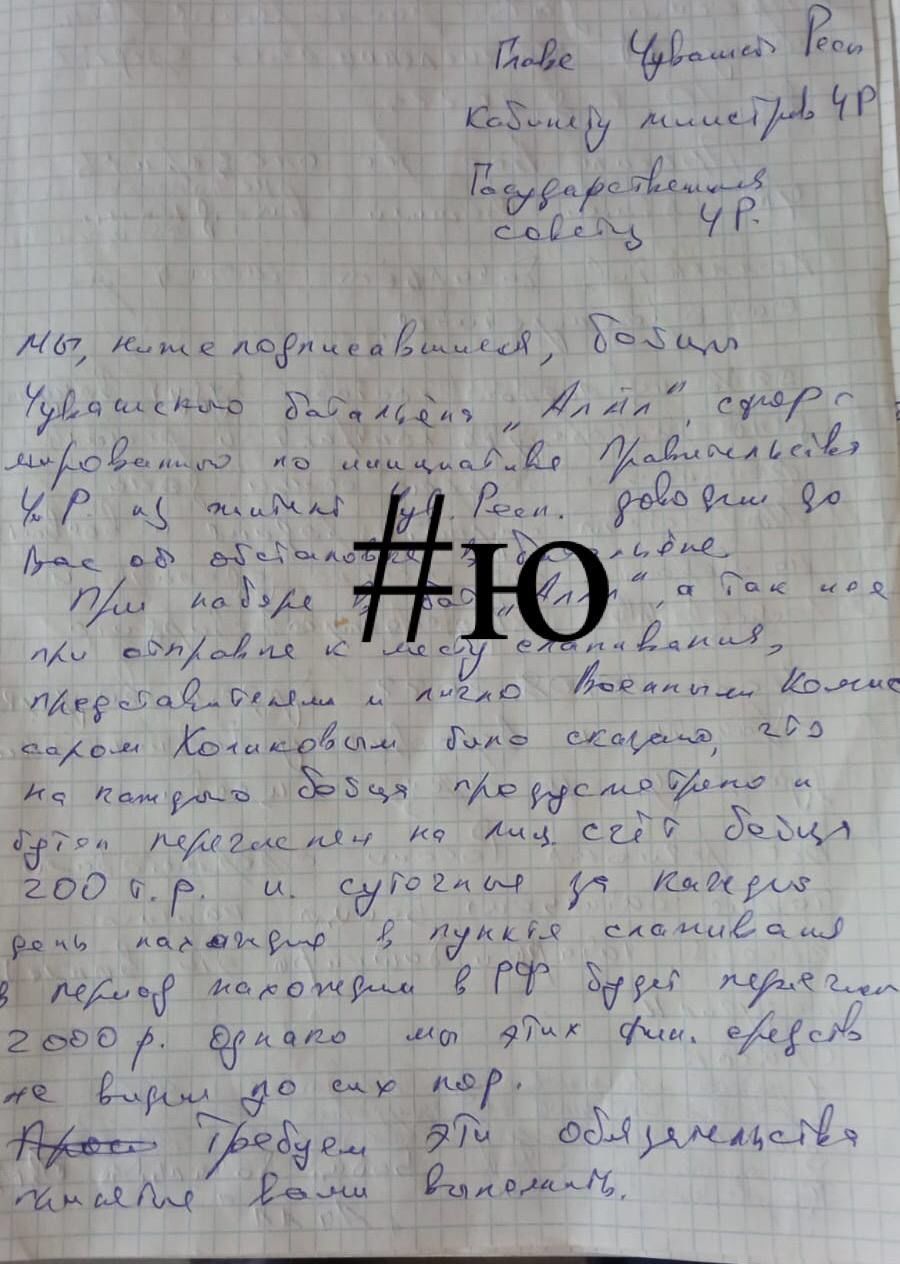 Главе Чувашск Респ
Кабинету министров ЧР
Государственная
совету ЧР.
Мы, нижеподписавшиеся, бойцы
Чувашского батальёна „Атăл", сфор-
мированного по инициативе Правительства
Ч.Р. из жителей Чув. Респ. доводим до
Вас об обстановке в батальёне.
#ю
При наборе в бат „Атăл", а так же
при отправке к месту слаживания,
представителями и лично Военным Комис
саром Холиковым было сказано, что
на каждого бойца предусмотрено и
будет перечислен на лиц. счёт бойца
200 т.р. и. суточные за каждый
день нахождия в пункте слаживания
в период нахождия в РФ будет перечисл
2000 р. Однако мы этих фин. средств
не видим до сих пор.
Требуем эти обязательства
принятые вами выполнить.